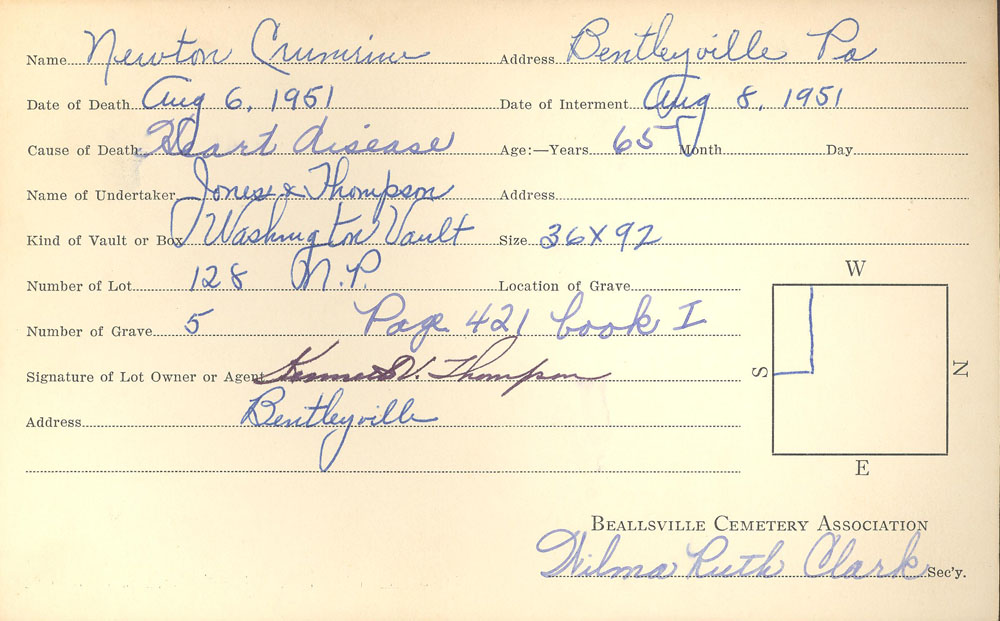 Name Newton Crumrine Address Bentleyville Pa
Date of Death Aug 6, 1951 Date of Interment Aug 8, 1951
Cause of Death Heart disease Age:—Years 65 Month Day
Name of Undertaker Jones & Thompson Address
Kind of Vault or Box Washington Vault Size 36X92
Number of Lot 128 N.P. Location of Grave
Number of Grave 5 Page 421 book I
Signature of Lot Owner or Agent V. Thompson
Address Bentleyville
W
S
N
E
BEALLSVILLE CEMETERY ASSOCIATION
Wilma Ruth Clark Sec'y.